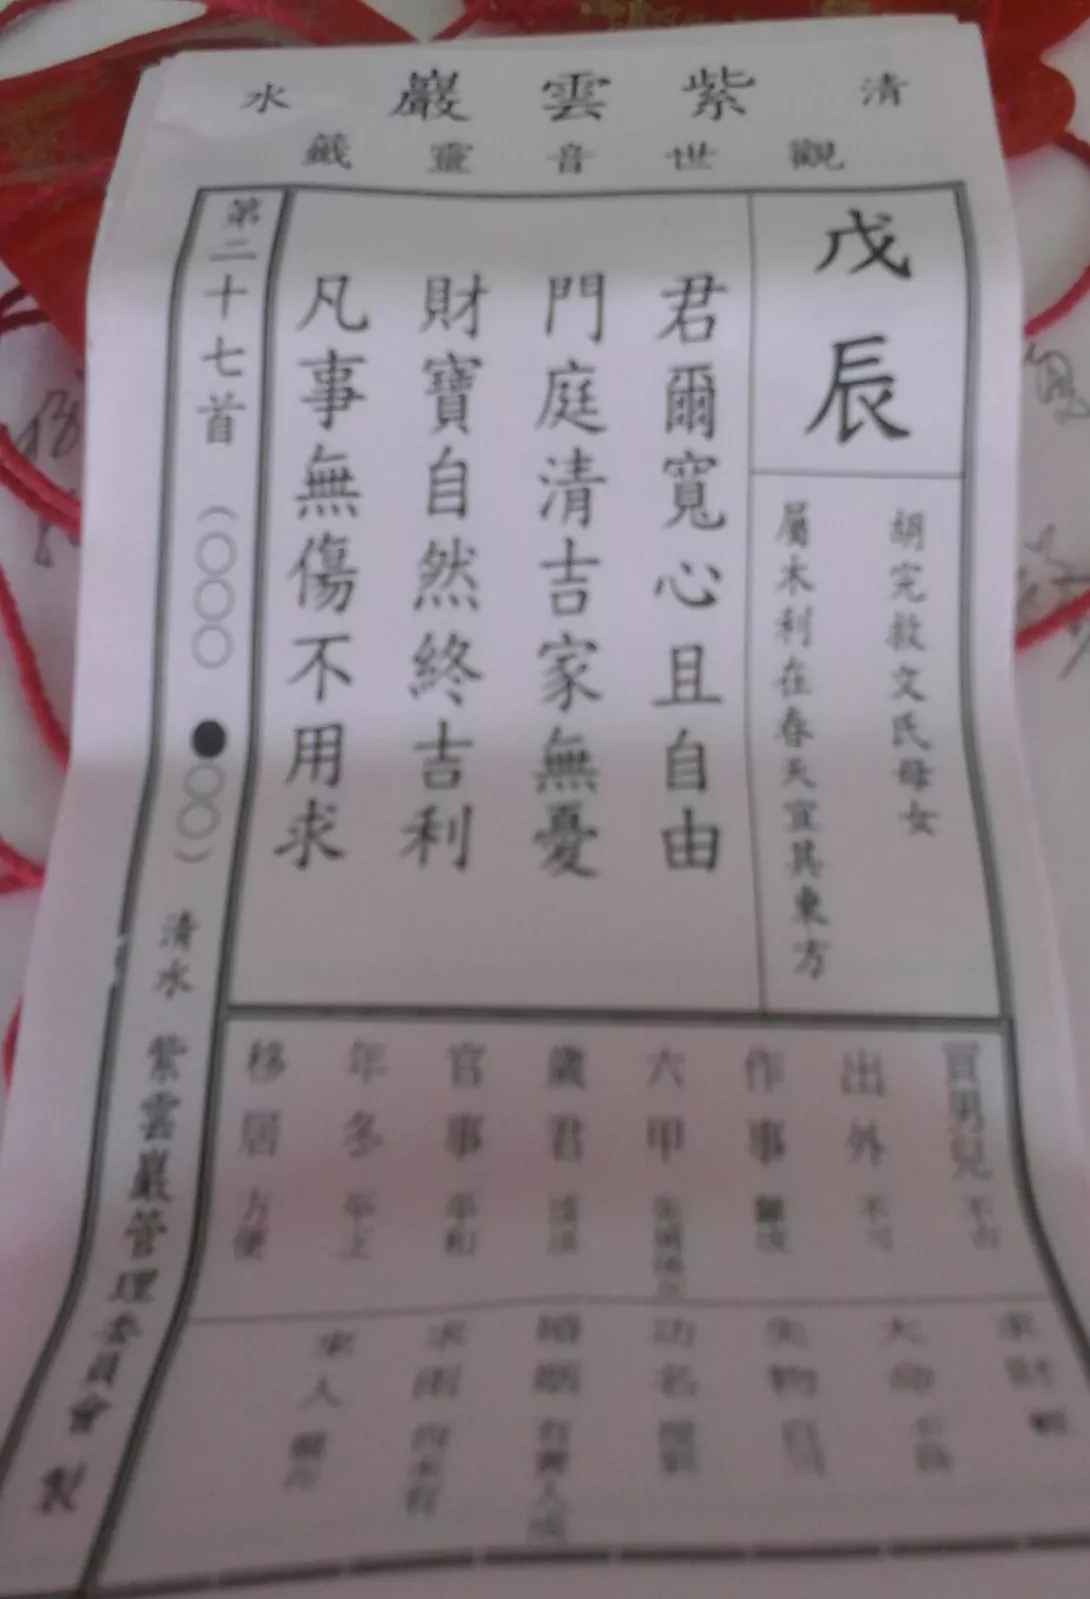 清 紫雲巖 水
觀世音靈籤
戊辰
胡完救文氏母女
屬木利在春天宜其東方
君爾寬心且自由
門庭清吉家無憂
財寶自然終吉利
凡事無傷不用求
第二十七首 （○○○ ●○○） 清水 紫雲巖管理委員會 製
買男兒 不可
出外 不可
作事 難成
六甲
歲君 淡淡
官事 平和
年冬 平上
移居 方便
求財 輕
大命
失物
功名
婚姻 有貴人成
求雨
來人